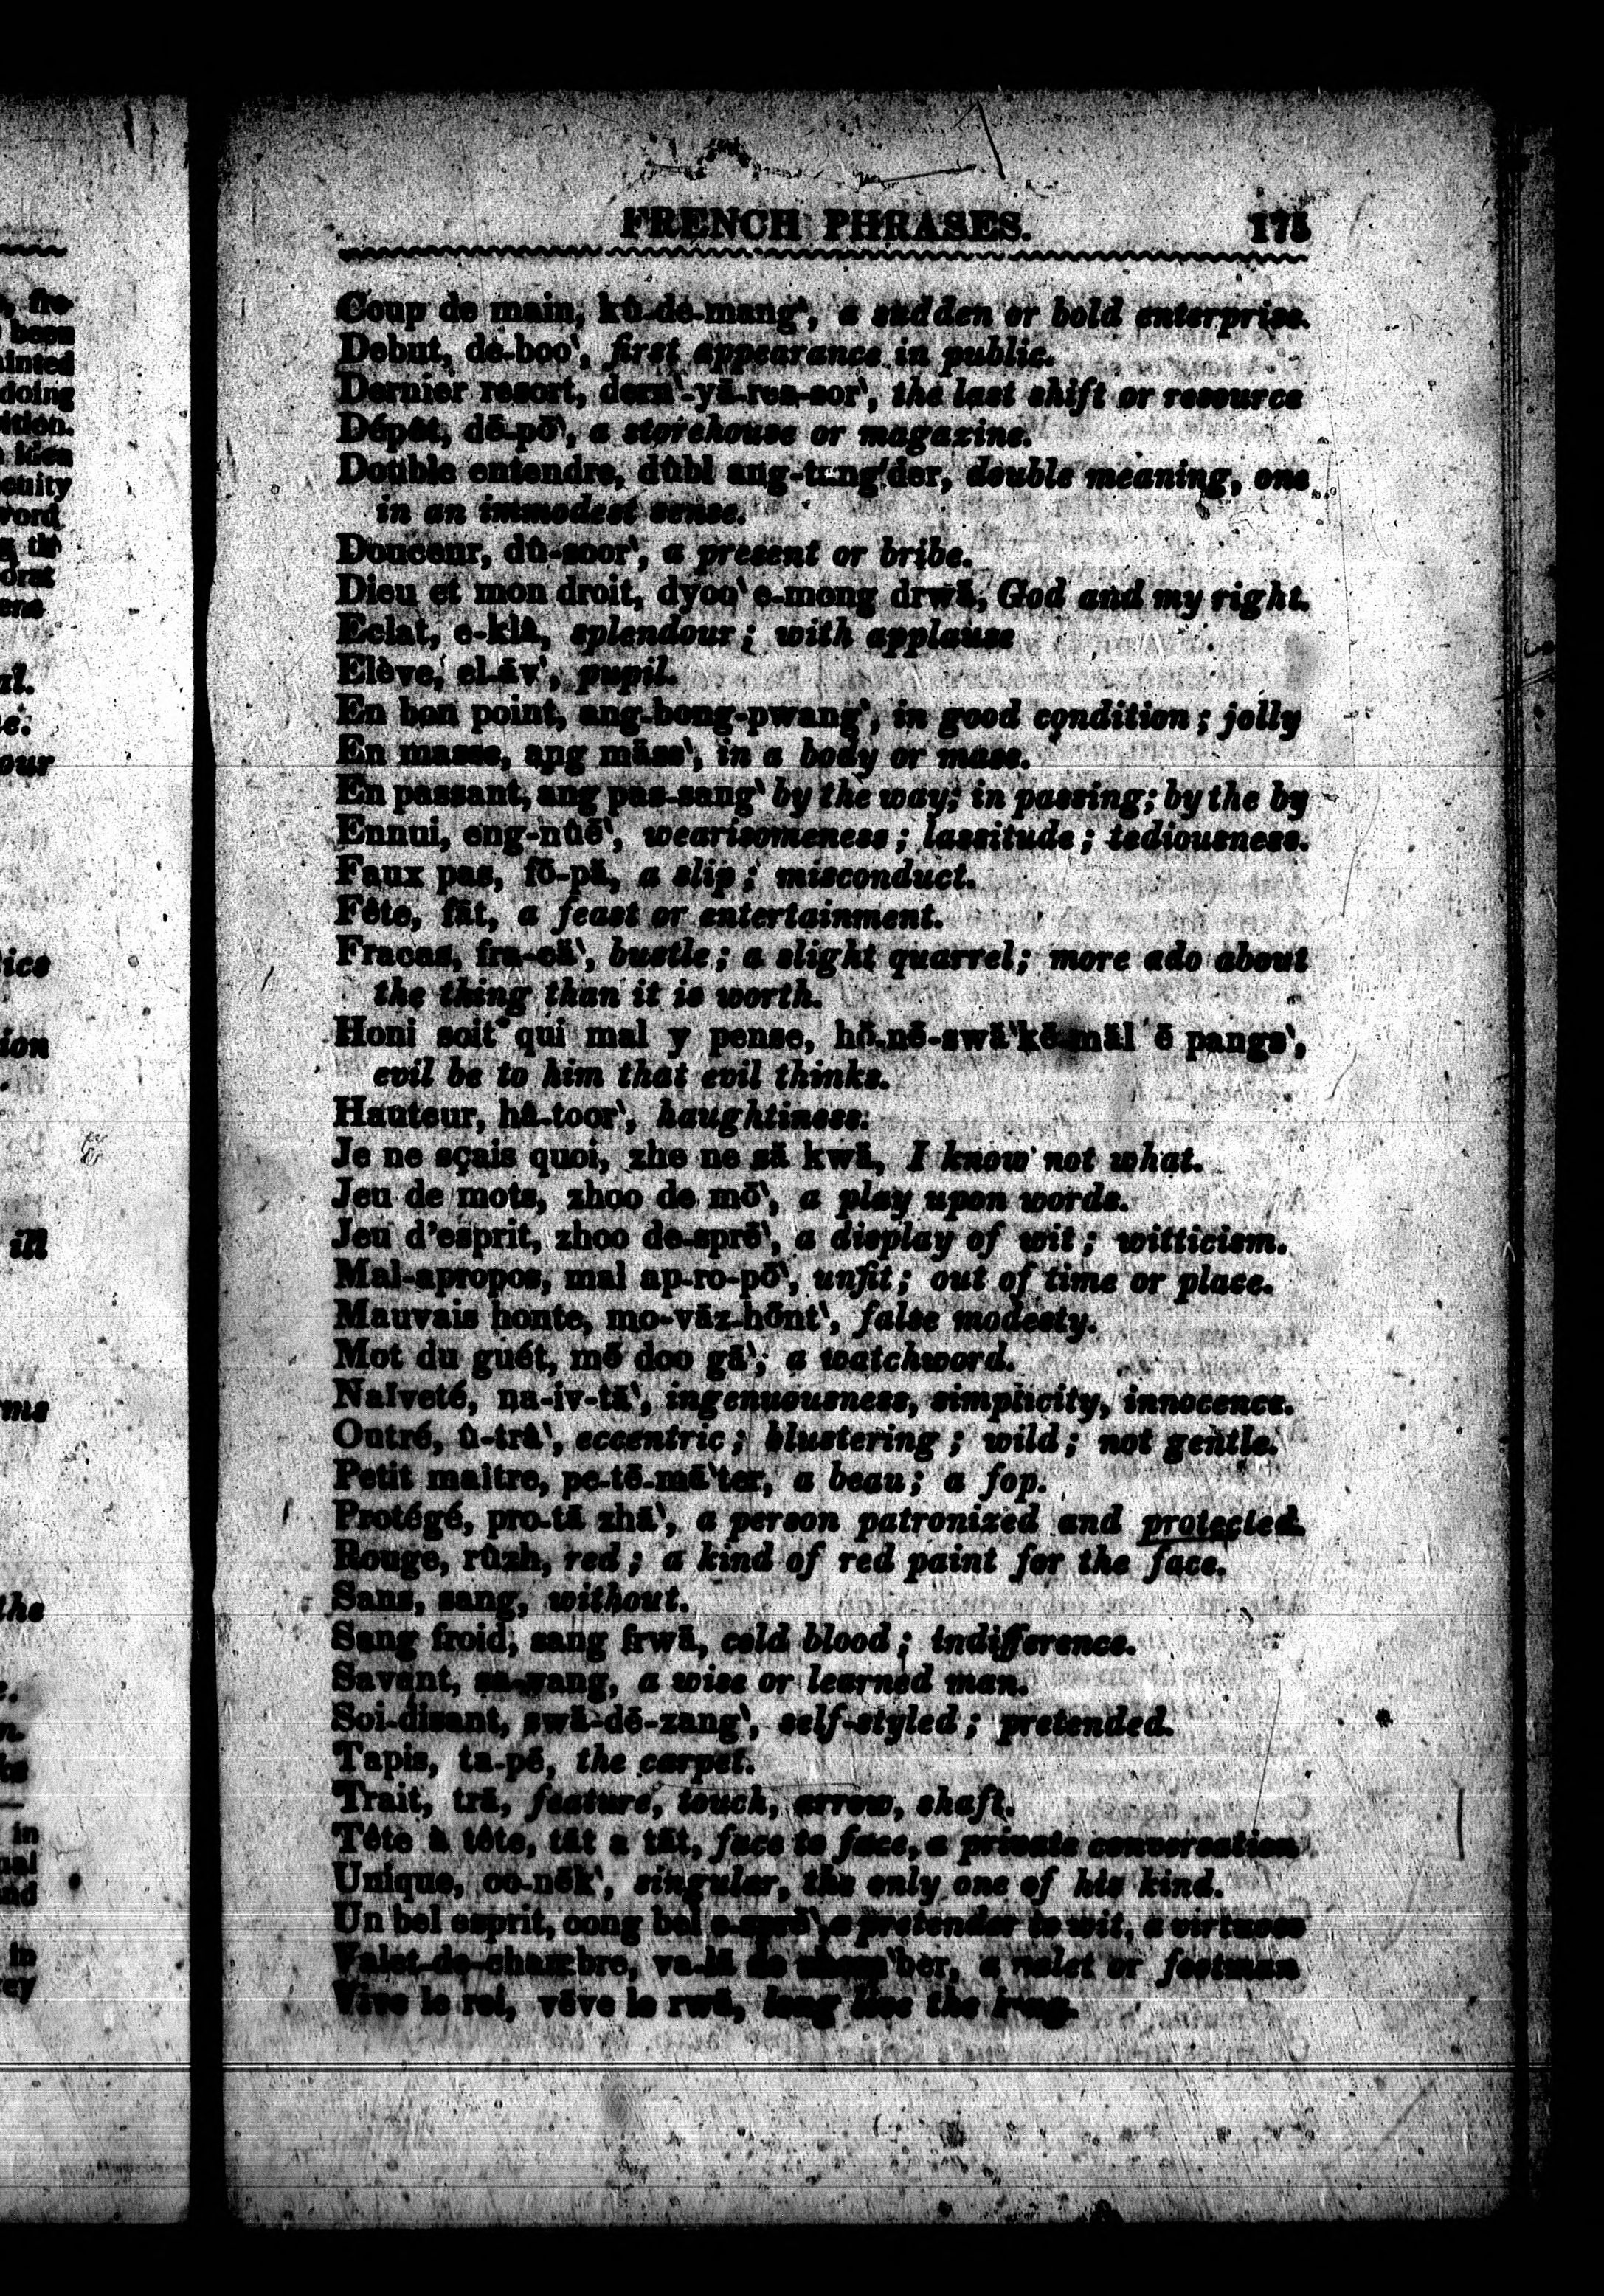 FRENCH PHRASES. 175
Coup de main, kû-de-mang', a sudden or bold enterprise.
Debut, de-boo', first appearance in public.
Dernier resort, dern'-yā-res-sor', the last shift or resource
Dépôt, dē-pō', a storehouse or magazine.
Double entendre, dûbl ang-tang'der, double meaning, one
in an immodest sense.
Douceur, dû-soor', a present or bribe.
Dieu et mon droit, dyoo' e-mong drwä, God and my right.
Eclat, e-klâ, splendour; with applause
Elève, el-āv', pupil.
En bon point, ang-bong-pwang', in good condition; jolly
En masse, ang mäss', in a body or mass.
En passant, ang pas-sang' by the way; in passing; by the by
Ennui, eng-nûē', wearisomeness; lassitude; tediousness.
Faux pas, fō-pä, a slip; misconduct.
Fête, fāt, a feast or entertainment.
Fracas, fra-cä', bustle; a slight quarrel; more ado about
the thing than it is worth.
Honi soit qui mal y pense, hō-nē-swä'kē mäl ē pangs',
evil be to him that evil thinks.
Hauteur, hâ-toor', haughtiness.
Je ne sçais quoi, zhe ne sā kwä, I know not what.
Jeu de mots, zhoo de mō', a play upon words.
Jeu d'esprit, zhoo de-sprē', a display of wit; witticism.
Mal-apropos, mal ap-ro-pō', unfit; out of time or place.
Mauvais honte, mo-vāz-hōnt', false modesty.
Mot du guét, mō doo gā'; a watchword.
Naïveté, na-iv-tā', ingenuousness, simplicity, innocence.
Outré, û-trâ', eccentric; blustering; wild; not gentle.
Petit maître, pe-tē-mā'ter, a beau; a fop.
Protégé, pro-tā zhā', a person patronized and protected.
Rouge, rûzh, red; a kind of red paint for the face.
Sans, sang, without.
Sang froid, sang frwä, cold blood; indifference.
Savant, sa-vang, a wise or learned man.
Soi-disant, swä-dē-zang', self-styled; pretended.
Tapis, ta-pē, the carpet.
Trait, trā, feature, touch, arrow, shaft.
Tête à tête, tāt a tāt, face to face, a private conversation
Unique, oo-nēk', singular, the only one of his kind.
Un bel esprit, oong bel e-sprē' a pretender to wit, a virtuoso
Valet-de-chambre, va-lā de 'ber, a valet or footman
Vive le roi, vēve le rwä, long live the king.